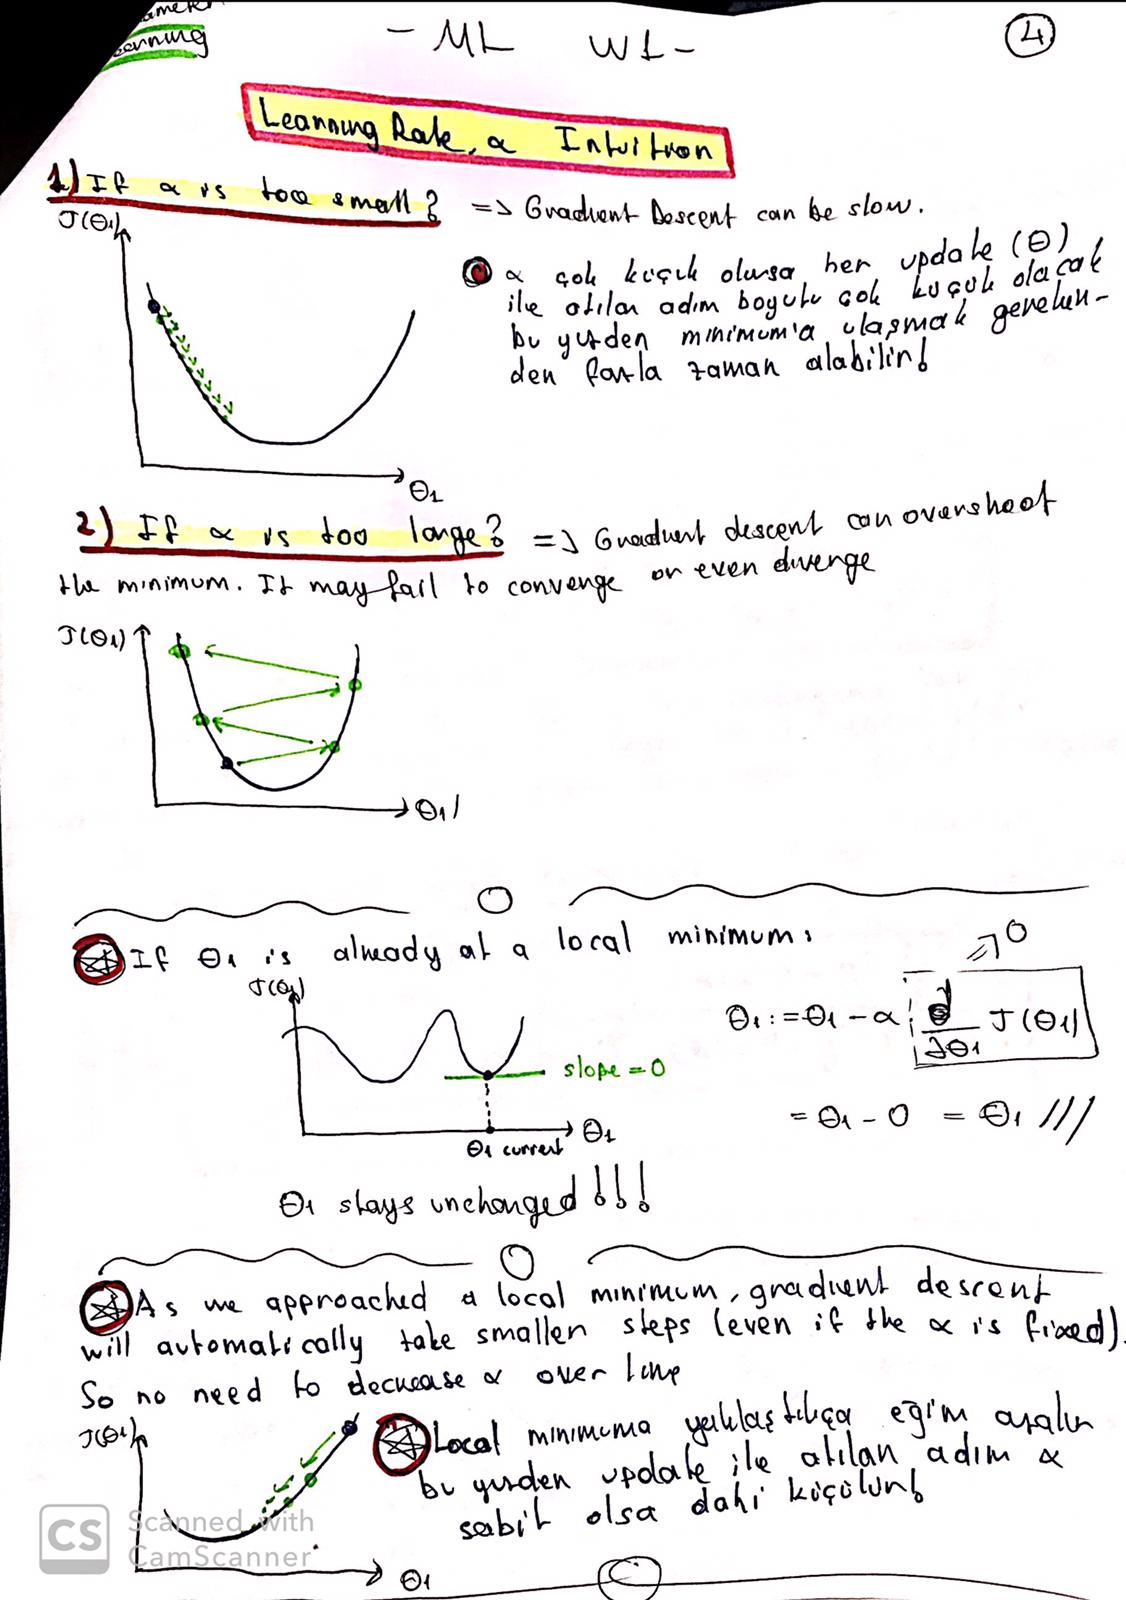 - ML W1 -
4
Learning Rate, α Intuition
1) If α is too small? => Gradient Descent can be slow.
J(θ1)
α çok küçük olursa her update (θ)
ile atılan adım boyutu çok küçük olacak
bu yüzden minimum'a ulaşmak gereken-
den fazla zaman alabilir!
θ1
2) If α is too large? => Gradient descent can overshoot
the minimum. It may fail to converge or even diverge
J(θ1)
θ1
If θ1 is already at a local minimum:
J(θ1)
slope = 0
θ1
θ1 current
=> 0
θ1 := θ1 - α ∂/∂θ1 J(θ1)
= θ1 - 0 = θ1 ///
θ1 stays unchanged!!!
As we approached a local minimum, gradient descent
will automatically take smaller steps (even if the α is fixed).
So no need to decrease α over time
J(θ1)
Local minimuma yaklaştıkça eğim azalır
bu yüzden update ile atılan adım α
sabit olsa dahi küçülür!
θ1
CS Scanned with
CamScanner